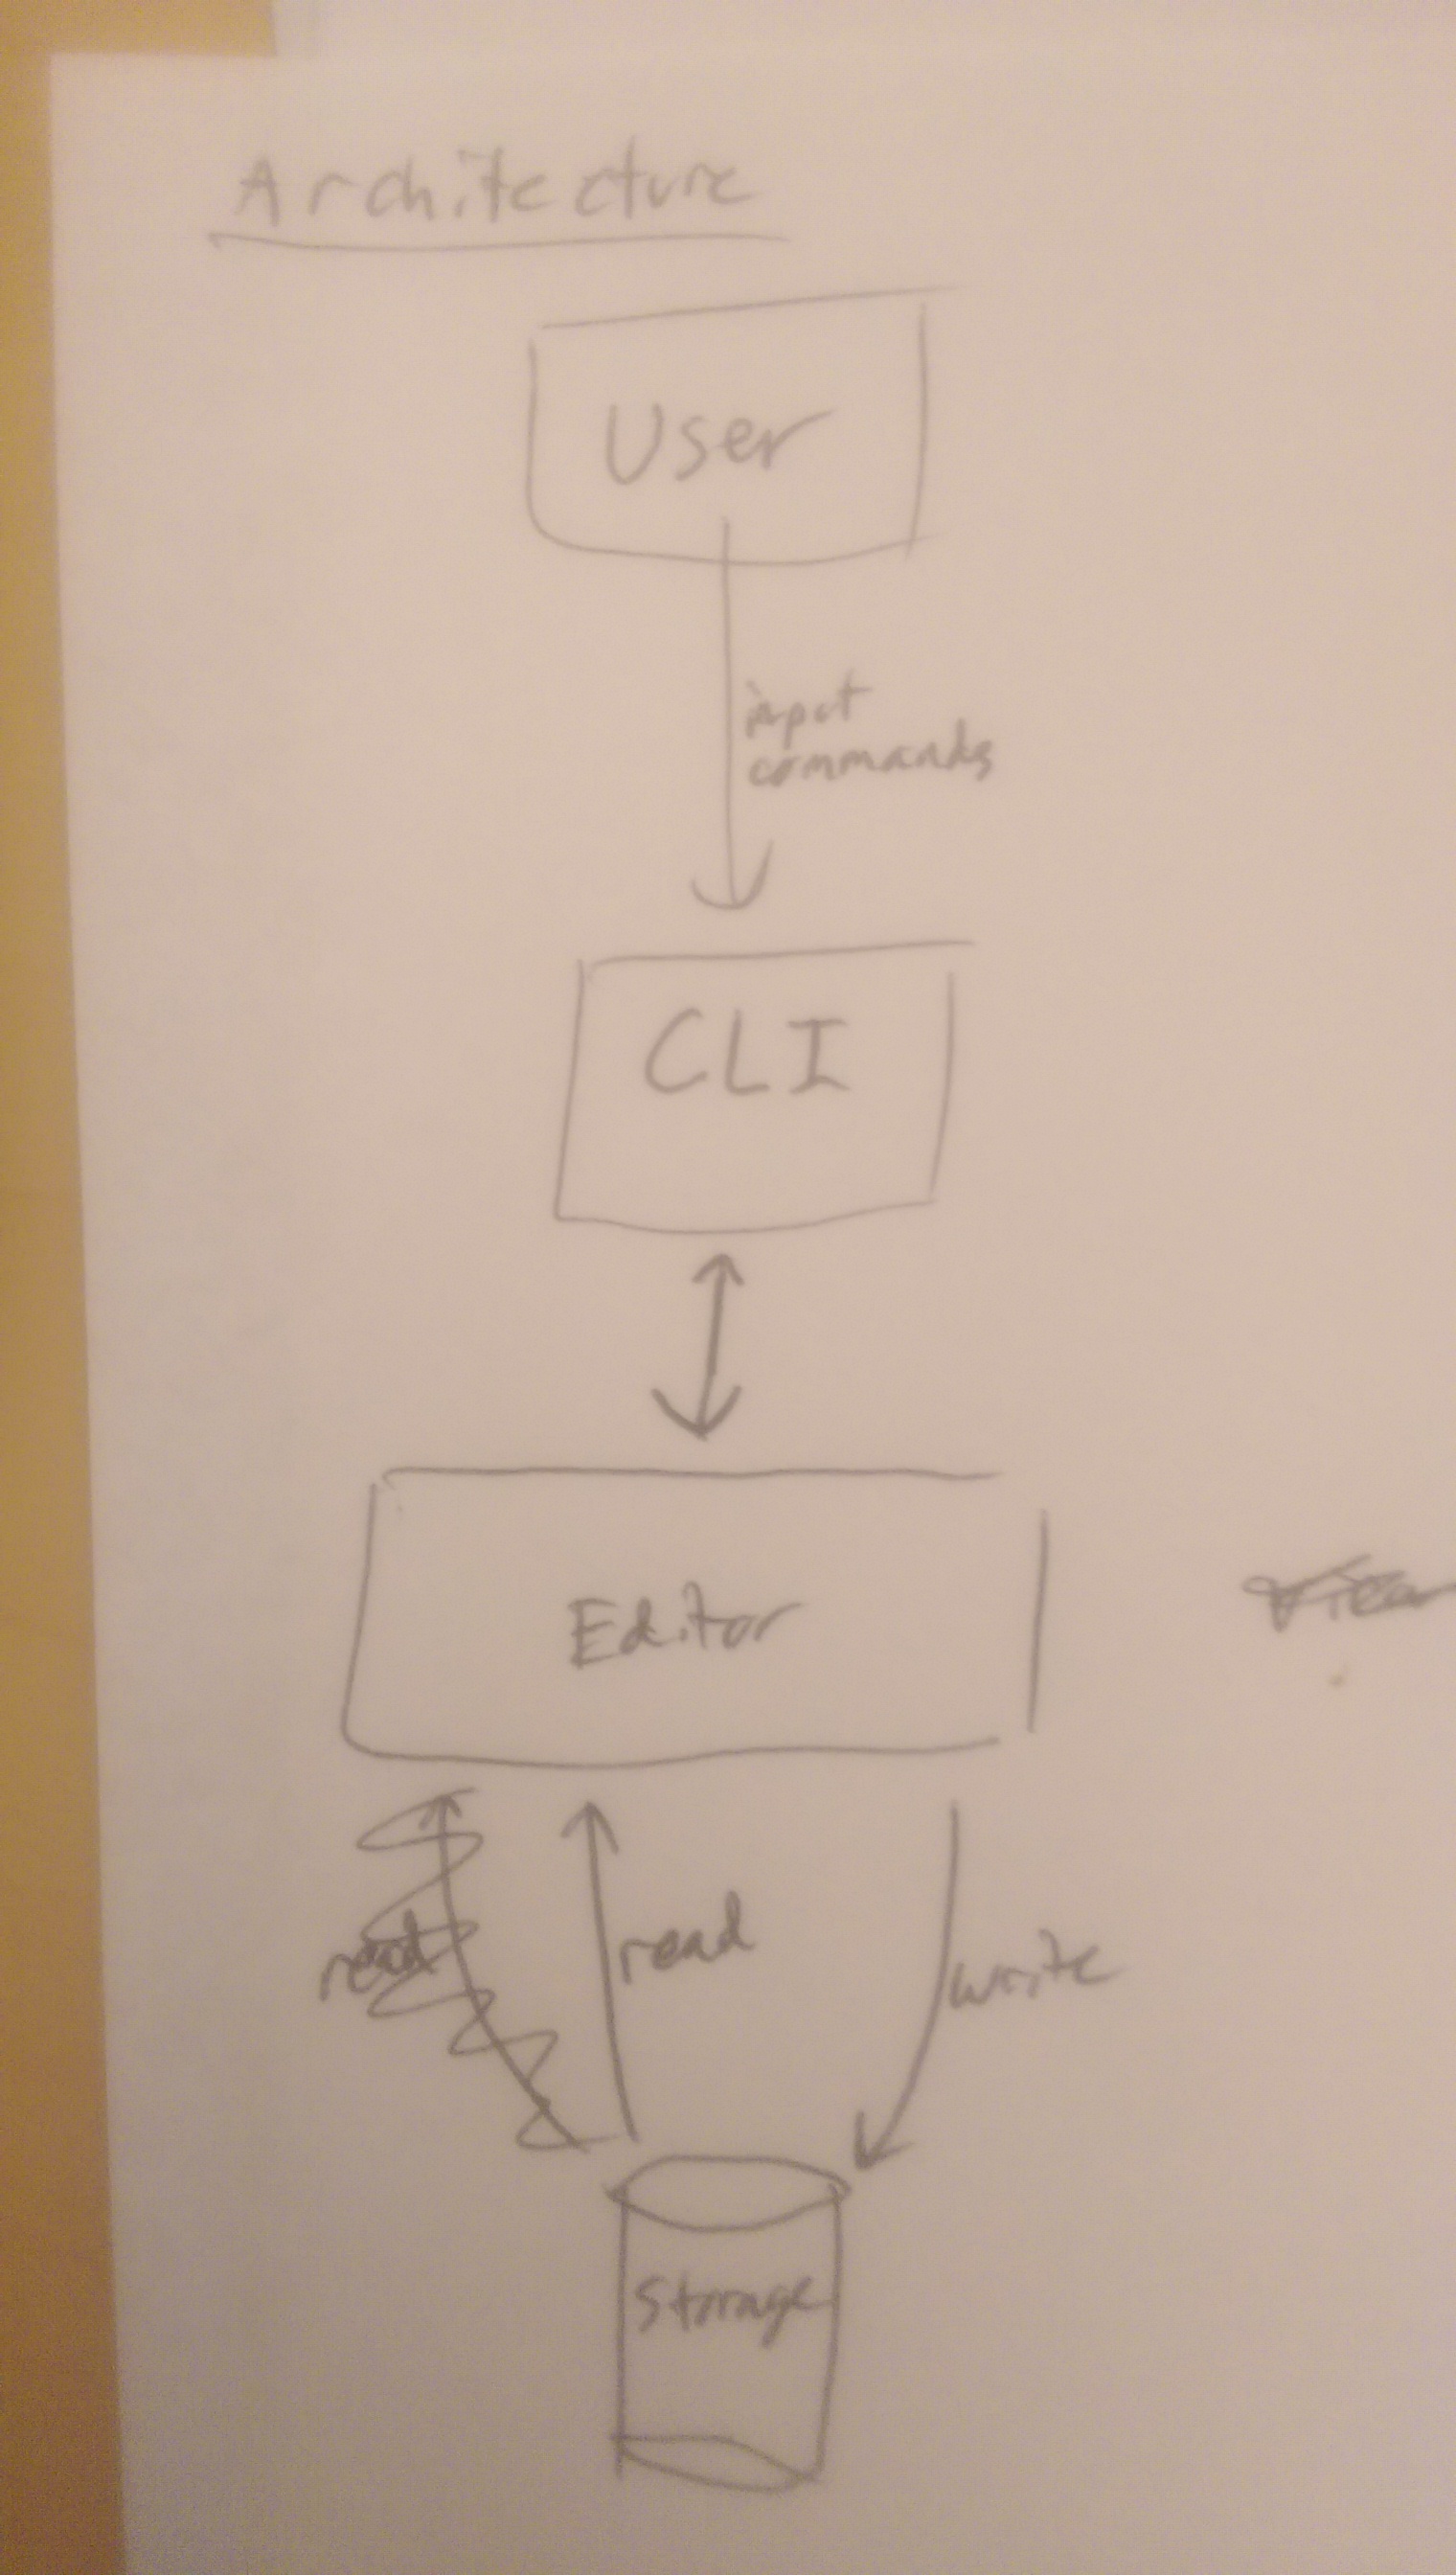 Architecture
User
input
commands
CLI
Editor
read
read
write
Storage